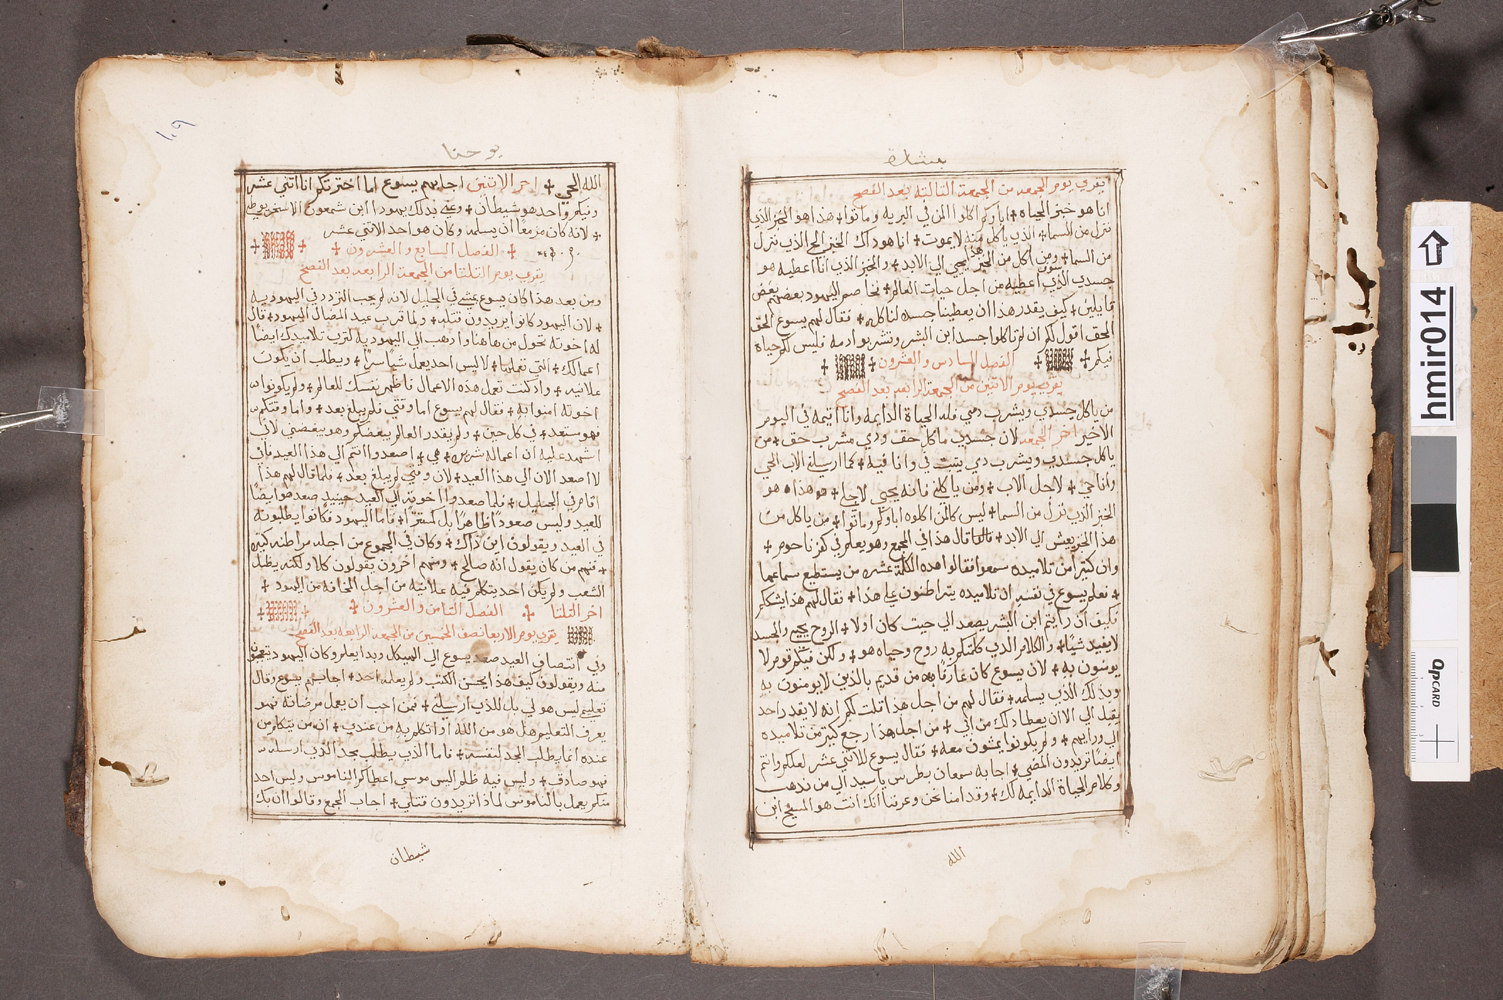 بشارة
يقري يوم الجمعه من الجمعة التالته بعد الفصح
انا هو خبز الحياه + اباوكم اكلوا المن في البريه وماتوا + هذا هو الخبز الذي
نزل من السما + الذي ياكل منه لا يموت + انا هو داك الخبز الحي الذي نزل
من السما + ومن اكل من هذا الخبز يحيى الي الابد + والخبز الذي انا اعطيه هو
جسدي الذي سوف اعطيه من اجل حيات العالم + فخاصم اليهود بعضهم بعض
قايلين + كيف يقدر هذا ان يعطينا جسده لناكله + فقال لهم يسوع الحق
الحق اقول لكم ان لم تاكلوا جسد ابن البشر وتشربوا دمه فليس لكم حياه
فيكم + الفصل السادس والعشرون +
يقري يوم الاتنين من الجمعة الرابعه بعد الفصح
من ياكل جسدي ويشرب دمي فله الحياة الدايمه وانا اقيمه في اليوم
الاخير اخر الجمعه لان جسدي ماكل حق ودمي مشرب حق + من
ياكل جسدي ويشرب دمي يتبت في وانا فيه + كما ارسلني الاب الحي
وانا حي + لاجل الاب + ومن ياكلني فانه يحيى لاجلي + هذا هو
الخبز الذي نزل من السما + ليس كالمن اكلوه اباوكم وماتوا + من ياكل من
هذا الخبز يعيش الي الابد + قال هذا في المجمع وهو يعلم في كفرناحوم +
وان كثيرًا من تلاميذه سمعوا فقالوا هذه الكلمة عسره من يستطيع سماعها
+ فعلم يسوع في نفسه ان تلاميذه يتراطنون علي هذا + فقال لهم هذا يشككم
فكيف ان رايتم ابن البشر يصعد الي حيت كان اولا + الروح يحيي والجسد
لا يفيد شيًا + والكلام الذي كلمتكم به روح وحياه هو + ولكن فيكم قوم لا
يومنون به + لان يسوع كان عارفًا من قديم بالذين لا يومنون به
وبذلك الذي يسلمه + فقال لهم من اجل هذا قلت لكم انه لا يقدر احد
يقبل الي الا ان يعطا ذلك من ابي + من اجل هذا رجع كثير من تلاميذه
الي ورايهم + ولم يكونوا يمشون معه + فقال يسوع للاتني عشر لعلكم وانتم
ايضًا تريدون المضي + اجابه سمعان بطرس يا سيد الي من نذهب
وكلام الحياة الدايمه لك + وقد امنا نحن وعرفنا انك انت هو المسيح ابن
الله
يوحنا
١٠٩
الله الحي + اخر الاتنين اجابهم يسوع اما اخترتكم انا اتني عشر
وفيكم واحد هو شيطان + وعني بذلك يهودا ابن شمعون الاسخريوطي
+ لانه كان مزمعًا ان يسلمه وكان هو احد الاتني عشر
+ الفصل السابع والعشرون +
يقري يوم التلتا من الجمعة الرابعه بعد الفصح
ومن بعد هذا كان يسوع يمشي في الجليل لانه لم يحب التردد في اليهودية
+ لان اليهود كانوا يريدون قتله + ولما قرب عيد المضال اليهود + قال
له اخوته تحول من هاهنا واذهب الي اليهودية لترى تلاميذك ايضًا
اعمالك + التي تعملها + لانه ليس احد يعمل شيا سرًا + ويطلب ان يكون
علانيه + واذ كنت تعمل هذه الاعمال فاظهر نفسك للعالم + ولم يكونوا
اخوته امنوا به + فقال لهم يسوع اما وقتي فلم يبلغ بعد + واما وقتكم
فهو مستعد + في كل حين + ولم يقدر العالم يبغضكم وهو يبغضني لاني
اشهد عليه ان اعماله شريره هي + اصعدوا انتم الي هذا العيد فاني
لا اصعد الان الي هذا العيد + لان وقتي لم يبلغ بعد + فلما قال لهم هذا
اقام في الجليل + فلما صعدوا اخوته الي العيد حينيذ صعد هو ايضًا
للعيد وليس صعودًا ظاهرًا بل كمستتر + فاما اليهود فكانوا يطلبونه
في العيد ويقولون اين ذاك + وكان في الجموع من اجله مراطنه كبيره
+ فمنهم من كان يقول انه صالح + ومنهم اخرون يقولون كلا ولكنه يضل
الشعب ولم يكن احد يتكلم فيه علانية من اجل المخافه من اليهود +
اخر التلتا + الفصل التامن والعشرون +
يقري يوم الاربعا نصف الخمسين من الجمعة الرابعه بعد الفصح
وفي انتصاف العيد صعد يسوع الى الهيكل وبدا يعلم وكان اليهود يتعجبون
منه ويقولون كيف هذا يحسن الكتب ولم يعلمه احد + اجابهم يسوع وقال
تعليمي ليس هو لي بل للذي ارسلني + فمن احب ان يعمل مرضاته فهو
يعرف التعليم هل هو من الله او اتكلم به من عندي + ان من يتكلم من
عنده انما يطلب المجد لنفسه + فاما الذي يطلب مجد الذي ارسله
فهو صادق + وليس فيه ظلم اليس موسى اعطاكم الناموس وليس احد
منكم يعمل بالناموس لماذا تريدون قتلي + اجاب الجمع وقالوا ان بك
شيطان
hmir014
QPCARD